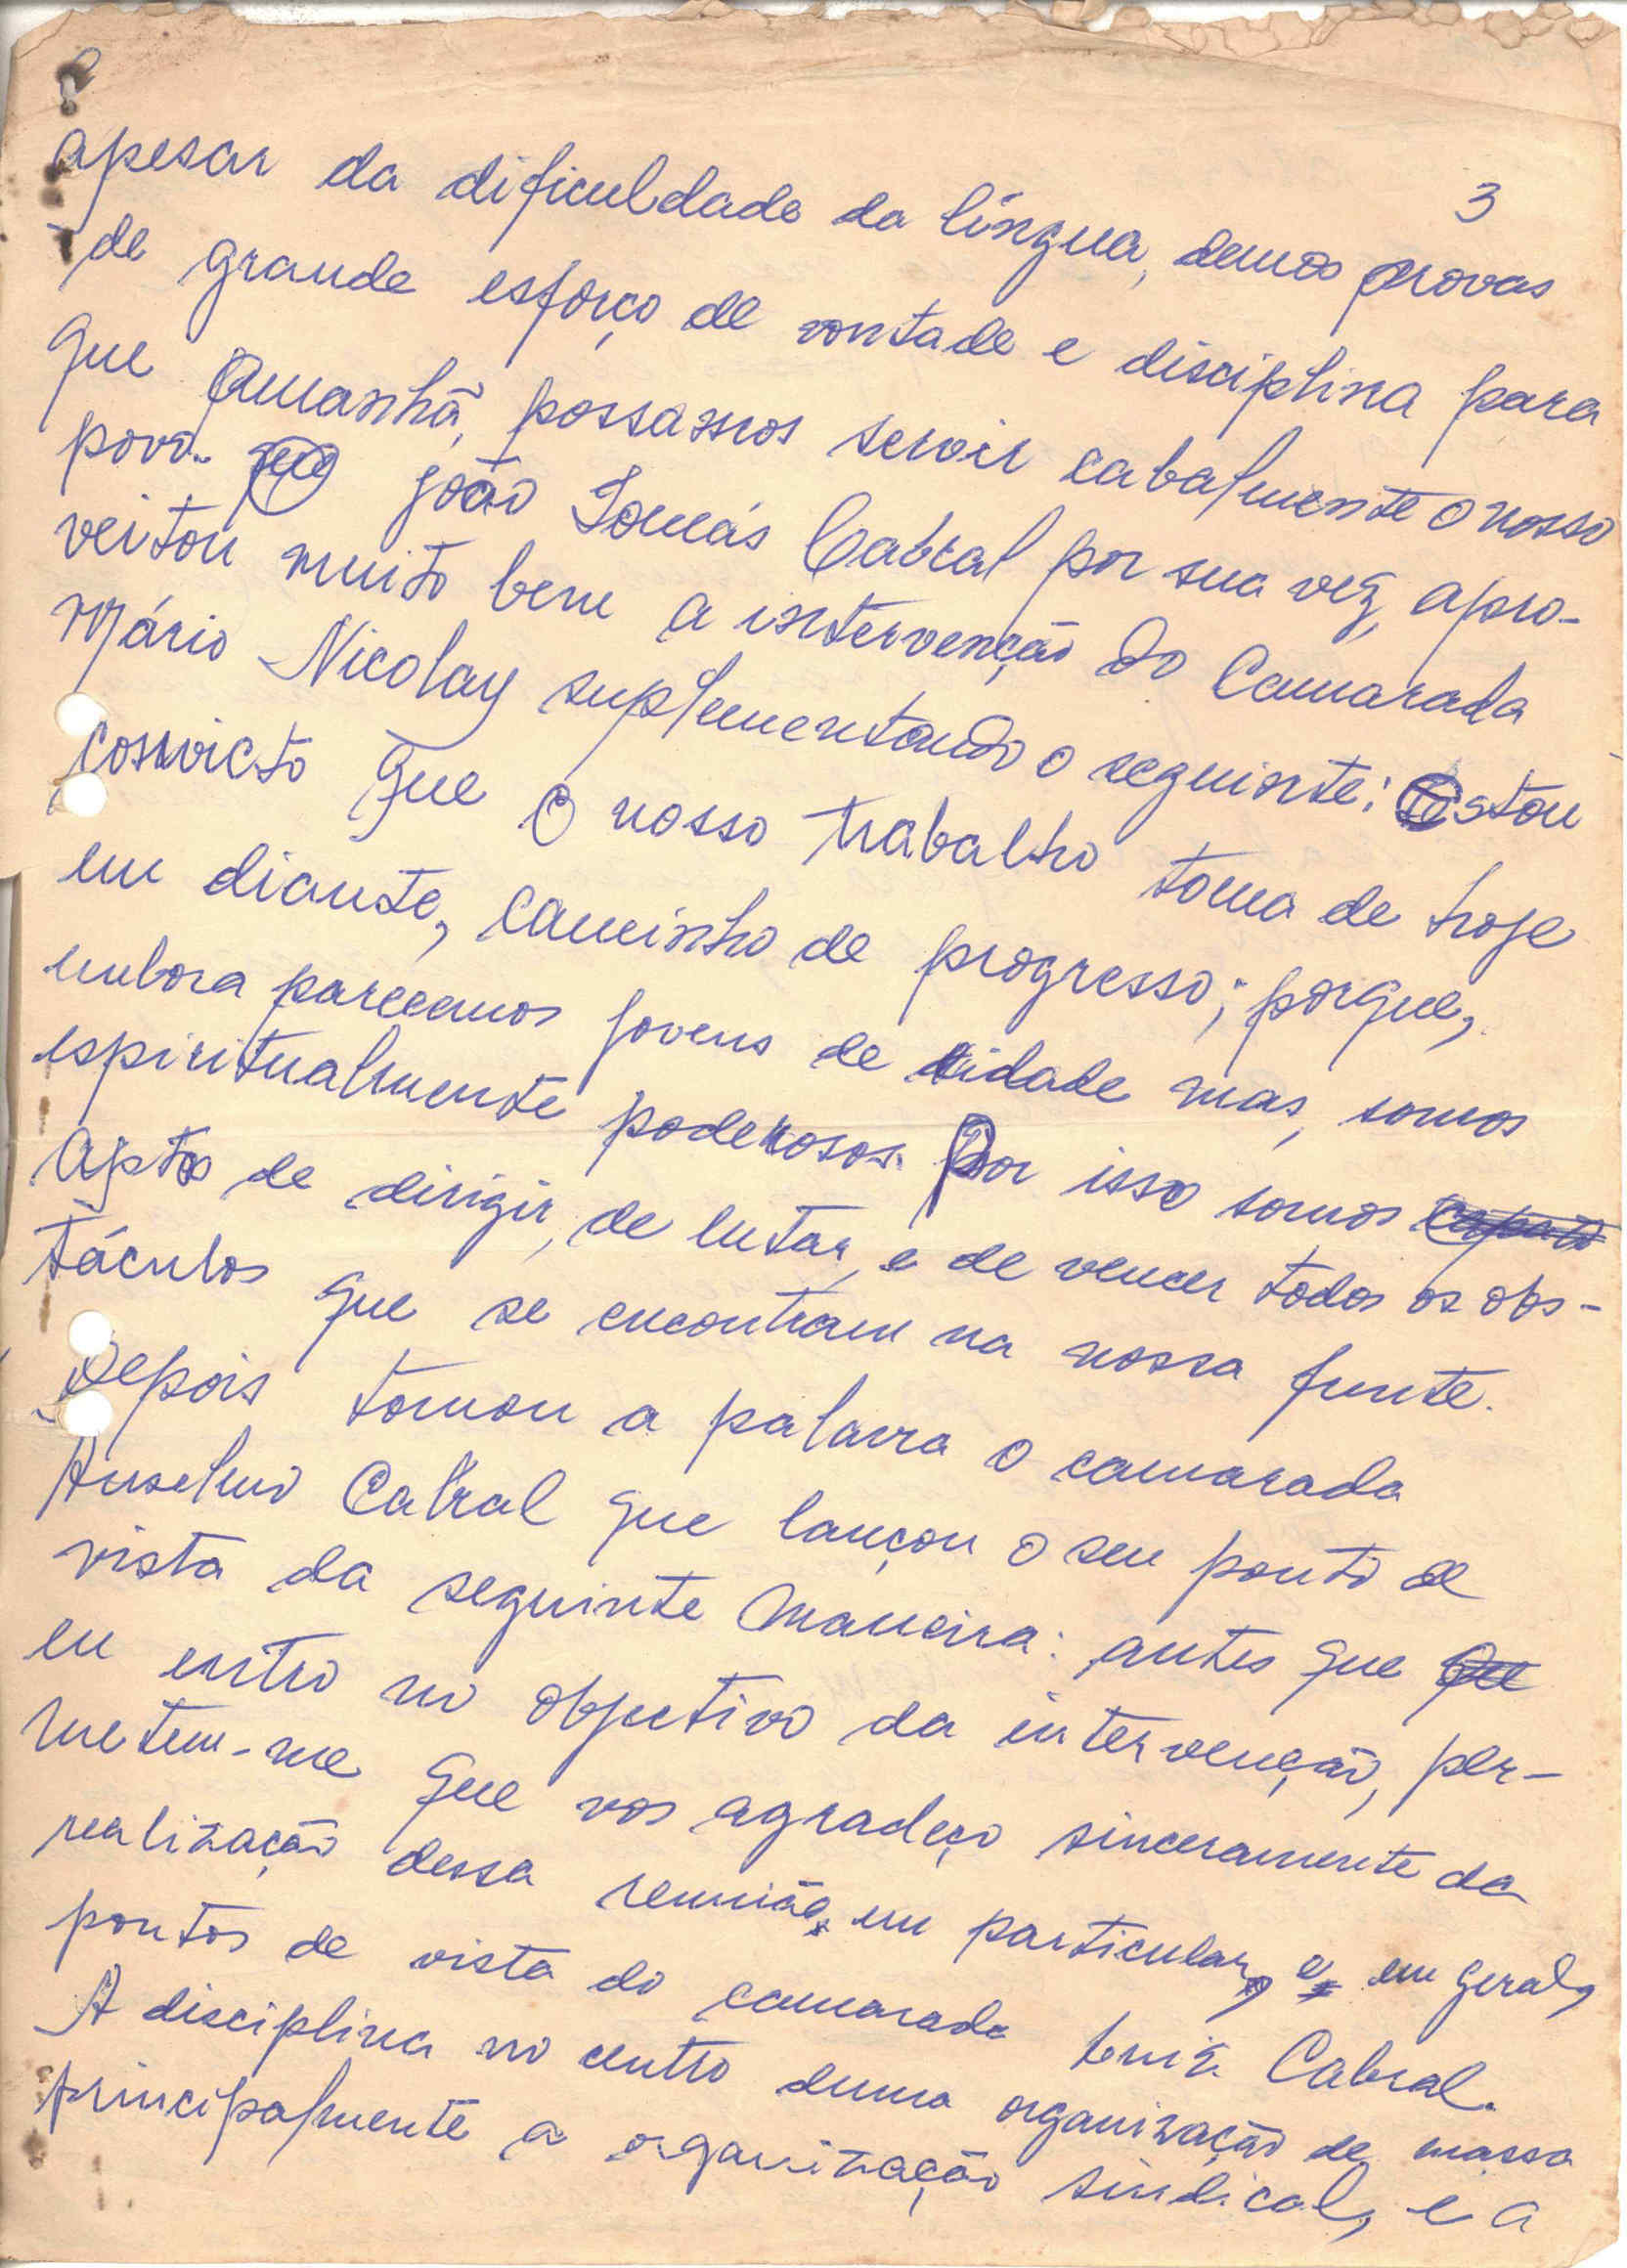 3
apesar da dificuldade da língua, demos provas
de grande esforço de vontade e disciplina para
que amanhã, possamos servir cabalmente o nosso
povo. que João Tomás Cabral por sua vez, apro-
veitou muito bem a intervenção do Camarada
Mário Nicolay suplementando o seguinte: estou
convicto que o nosso trabalho toma de hoje
em diante, caminho de progresso; porque,
embora parecemos jovens de idade mas, somos
espiritualmente poderosos. Por isso somos
aptos de dirigir, de lutar, e de vencer todos os obs-
táculos que se encontram na nossa frente.
Depois tomou a palavra o camarada
Anselmo Cabral que lançou o seu ponto de
vista da seguinte maneira: antes que que
eu entro no objectivo da intervenção, per-
metem-me que vos agradeço sinceramente da
realização dessa reunião, em particular, e, em geral,
pontos de vista do camarada Luiz Cabral.
A disciplina no centro duma organização de massa
principalmente a organização sindical, e a